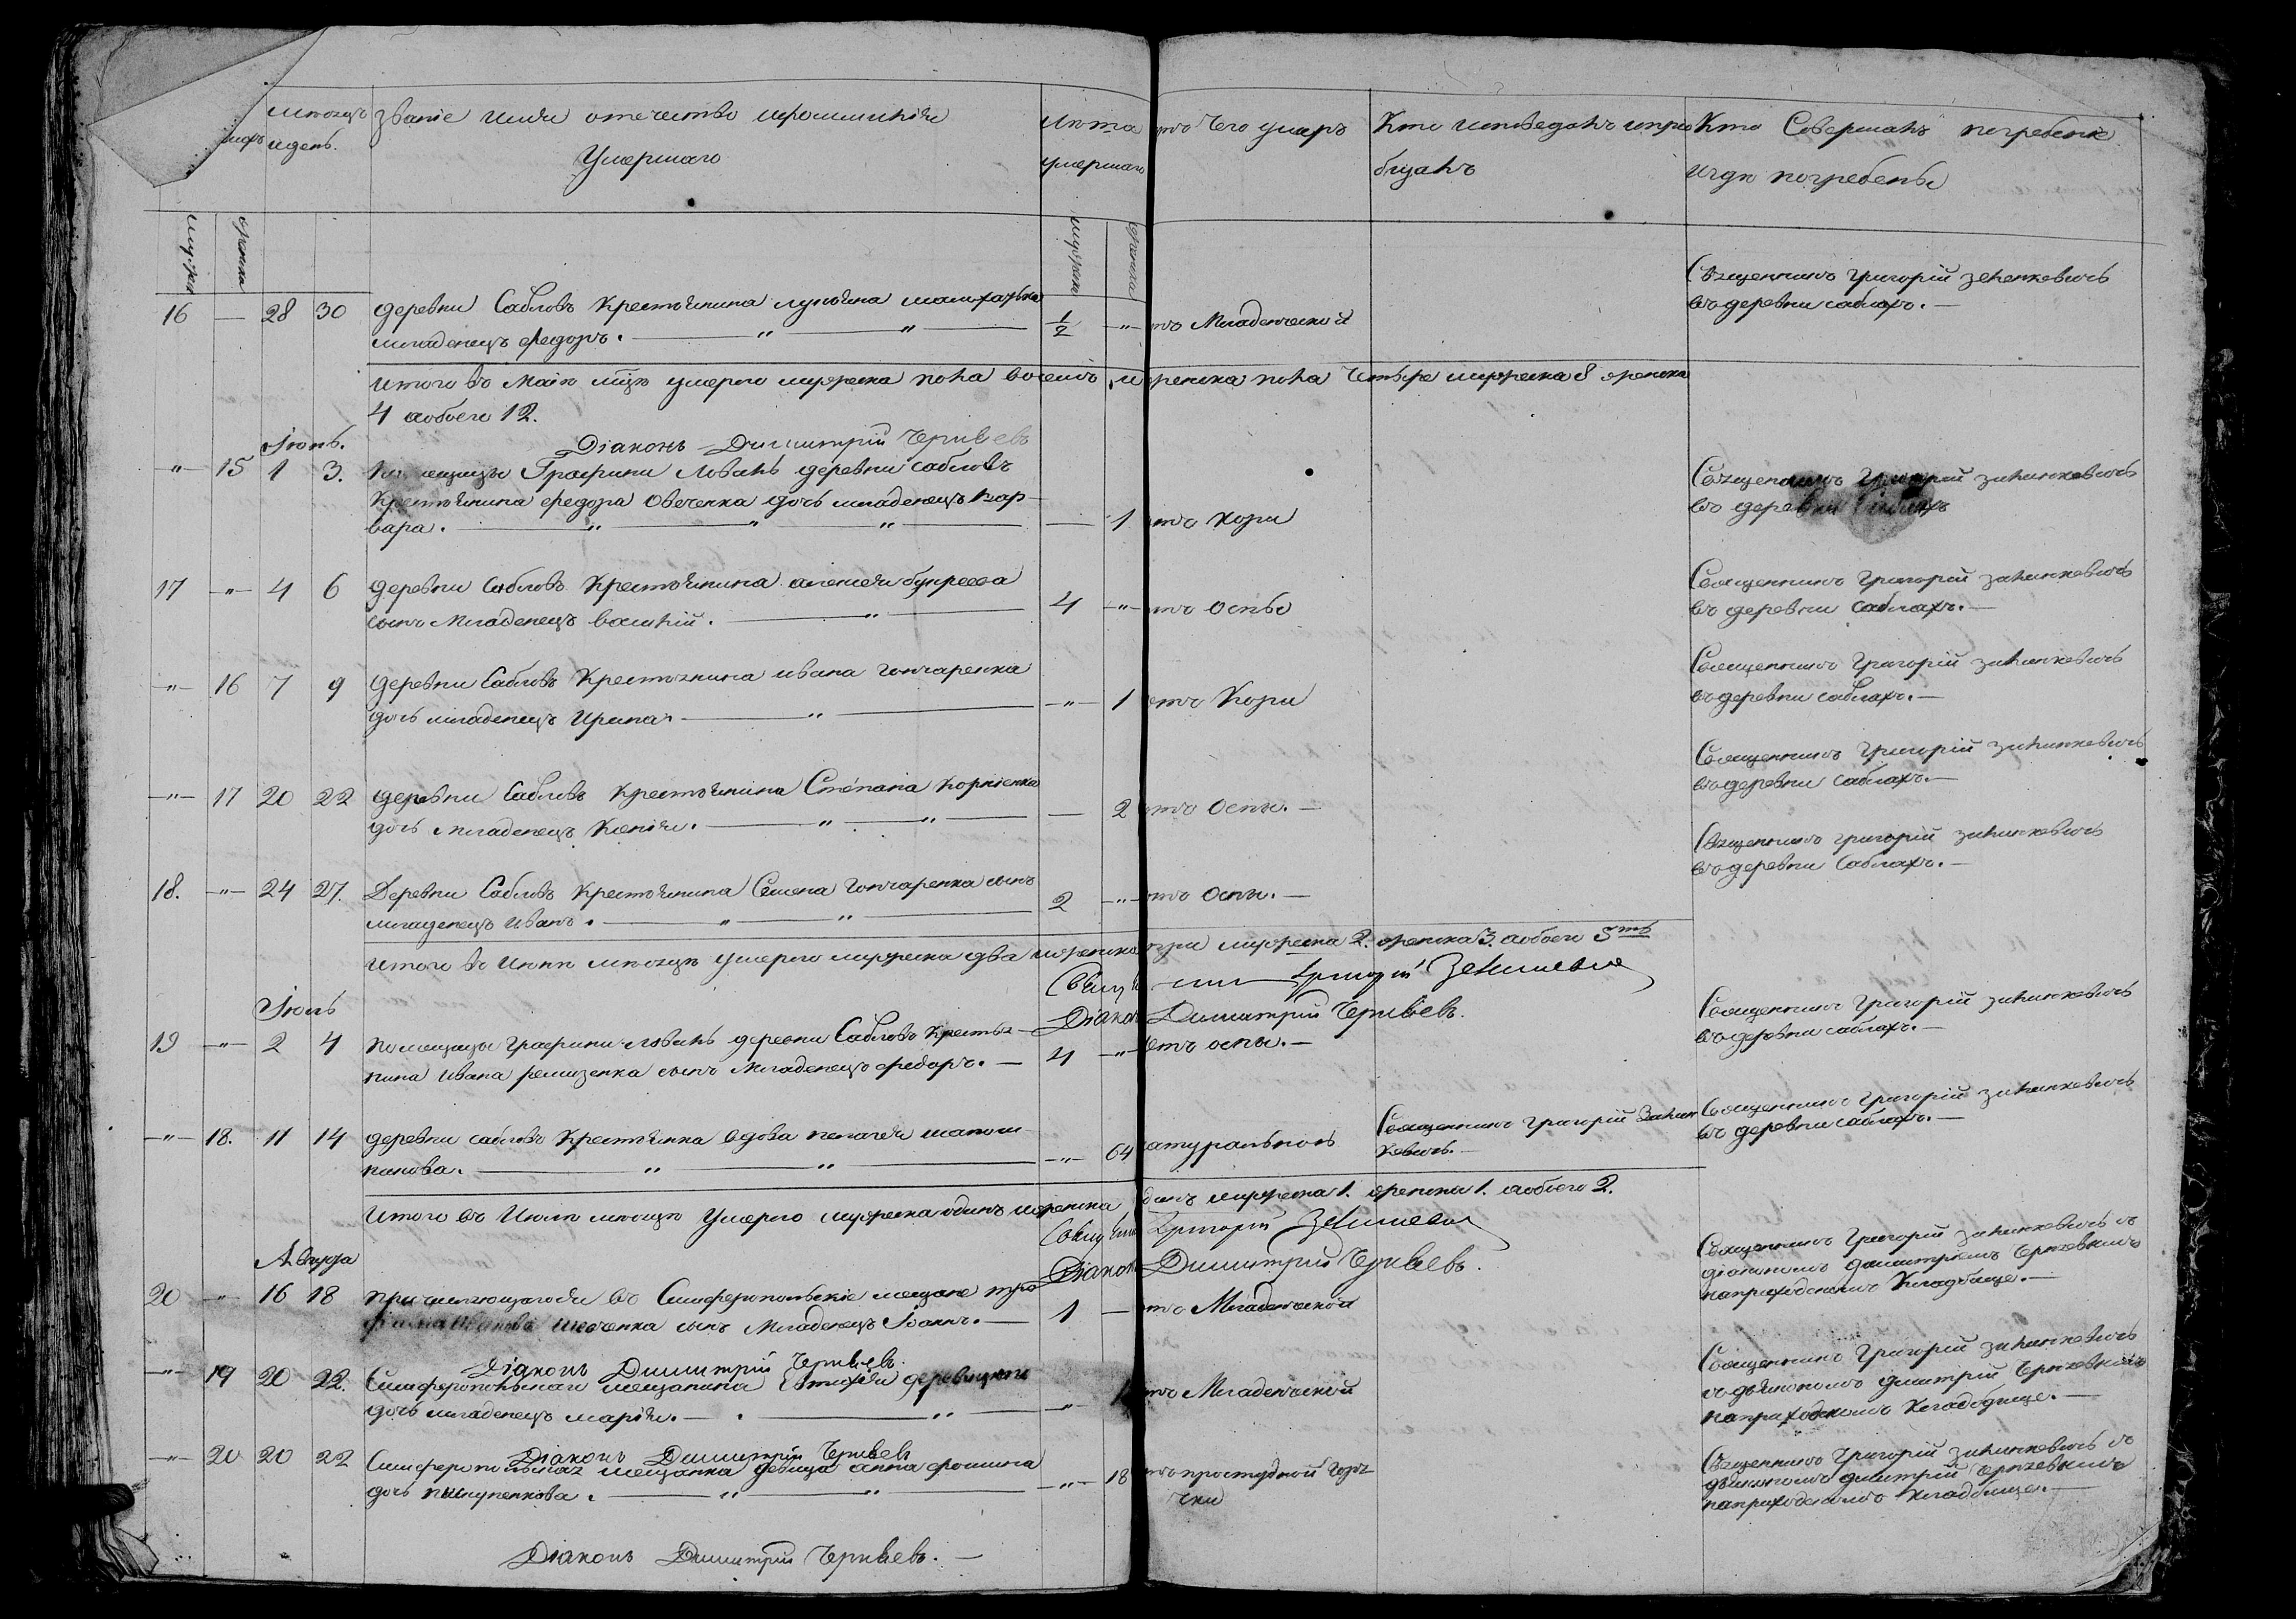 мѣсяцъ
и день.
званіе имя отечество и прозвиніе
Умершаго
лѣта
умершаго
отъ Чего умеръ
Кто исповедалъ и прио
бщалъ
Кто Совершалъ погребеніе
и где погребены
мужеска
женска
мужеска
женска
16 — 28 30 деревни Сабловъ Крестьянина
младенецъ Федоръ. — " — " — 1/2 — " — отъ Младенческой
Священникъ Григорий Зененкевичь
въ деревни саблахъ. —
Итого въ Маіи мцѣ умерло мужеска пола восемь, женска пола Четыре мужеска 8 женска
4 а обоего 12.
Діаконъ Димитрій Чернѣевъ
Іюнь.
" — 15 1 3. Помещицы Графини Лаваль деревни Сабловъ
Крестьянина Федора Овечепка дочь младенецъ Вар-
вара. — " — " — " — 1 отъ кори
Священникъ Григорий Зинкевичь
въ деревни Саблахъ
17 — " — 4 6 деревни Сабловъ Крестьянина алексея букреева
сынъ Младенецъ василій. — " — 4 — " — отъ оспы
Священникъ Григорій Зинкевичь
въ деревни Саблахъ. —
— " — 16 7 9 деревни Сабловъ Крестьянина ивана гончаренка
дочь младенецъ Ирина. — " — " — 1 отъ Кори
Священникъ Григорій Зинкевичь
въ деревни саблахъ. —
— " — 17 20 22 деревни Сабловъ Крестьянина Степана Корніенка
дочь Младенецъ Ксенія. — " — " — 2 отъ Оспы. —
Священникъ Григорій Зинкевичь
въ деревни саблахъ. —
18. — " — 24 27. Деревни Сабловъ Крестьянина Семена Гончаренка сынъ
младенецъ Иванъ. — " — " — 2 — " — отъ Оспы. —
Священникъ Григорій Зинкевичь
въ деревни Саблахъ. —
Итого въ Июнѣ месяцѣ умерло мужеска два женска три мужеска 2. женска 3. а обоего 5ть
Священникъ Григорій
Діаконъ Димитрій Чернѣевъ.
Іюль
19 — " — 2 4 помещицы графини Лаваль деревни Сабловъ Крестья-
нина Ивана ремизенка сынъ Младенецъ Федоръ. — 4 — " — отъ оспы. —
Священникъ Григорій Зинкевичь
въ деревни саблахъ. —
— " — 18. 11 14 деревни саблов Крестьянка вдова пелагея
— " — " — " — 64 натуральной
Священникъ Григорій Зинкевичь. —
Священникъ Григорій Зинкевичь
въ деревни саблахъ. —
Итого въ Июлѣ месяцѣ Умерло мужеска одинъ женска одинъ мужеска 1. женска 1. а обоего 2.
Священникъ Григорій
Діаконъ Димитрій Чернѣевъ.
Августа
20 — " — 16 18 причисляющагося въ Симферопольскіе мещане тро
фима Иванова сынъ Младенецъ Іоаннъ. — 1 — отъ Младенческой
Священникъ Григорій Зинкевичь съ
діакономъ Димитріемъ Чернѣевымъ
на приходскомъ Кладбище. —
Діаконъ Димитрій Чернѣевъ.
— " — 19 20 22. Симферопольскаго мещанина Евтихія
дочь младенецъ марія. — " — " — отъ Младенческой
Священникъ Григорій Зинкевичь
съ діакономъ Димитрій Чернѣевымъ
на приходскомъ Кладбище. —
Діаконъ Димитрій Чернѣевъ
— " — 20 20 22 Симферопольская мещанка девица анна фомина
дочь — " — " — " — 18 отъ простудной Горя-
чки
Священникъ Григорій Зинкевичь съ
діакономъ Димитрій Чернѣевымъ
на приходскомъ Кладбище. —
Діаконъ Димитрій Чернѣевъ. —